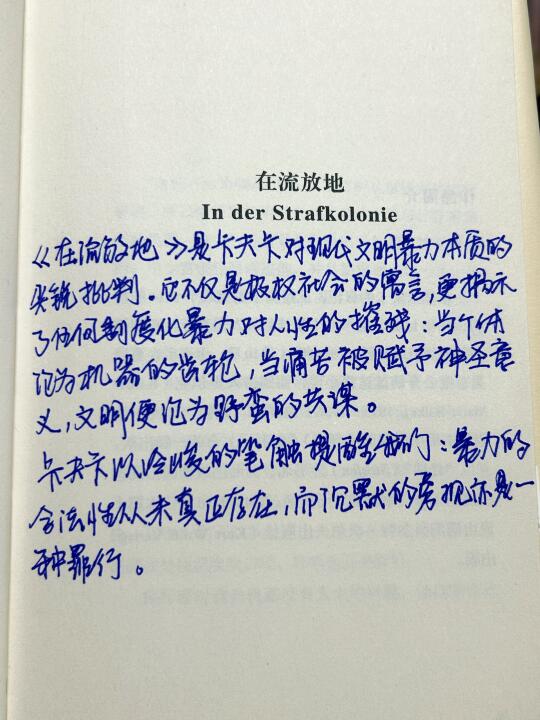 在流放地
In der Strafkolonie
《在流放地》是卡夫卡对现代文明暴力本质的
尖锐批判。它不仅是极权社会的寓言,更揭示
了任何制度化暴力对人性的摧残:当个体
沦为机器的齿轮,当痛苦被赋予神圣意
义,文明便沦为野蛮的共谋。
卡夫卡以冷峻的笔触提醒我们:暴力的
合法性从未真正存在,而沉默的旁观亦是一
种罪行。